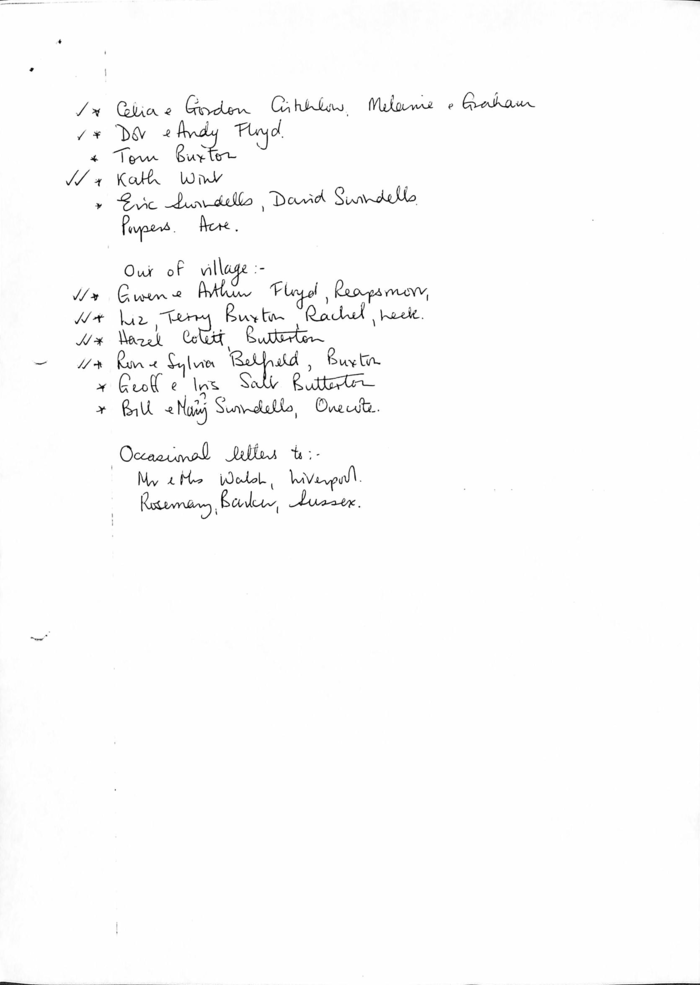 ✓* Celia & Gordon Critchlow, Melanie & Graham
✓* Dot & Andy Floyd.
* Tom Buxton
✓✓* Kath Wint
* Eric Swindells, David Swindells.
Pypers. Acre.
Out of village:-
✓✓* Gwen & Arthur Floyd, Reapsmoor,
✓✓* Liz, Terry Buxton, Rachel, Leek.
✓✓* Hazel, Butterton
✓✓* Ron & Sylvia Belfield, Buxton
* Geoff & Iris Salt Butterton
* Bill & Mary Swindells, Onecote.
Occasional letters to:-
Mr & Mrs Walsh, Liverpool.
Rosemary, Barker, Sussex.